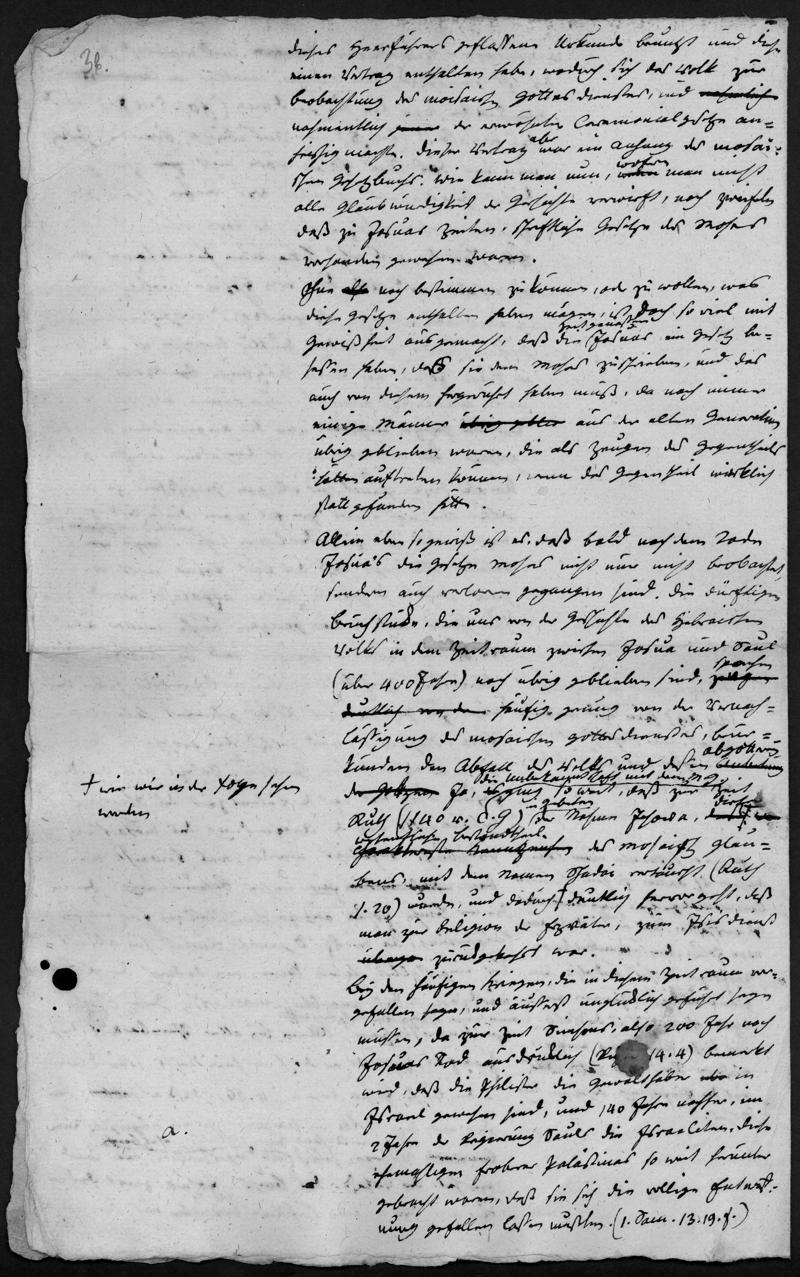 38.
dieses Heerführers geflossene Urkunde benutzt und diese
einen Vertrag enthalten habe, wodurch sich das Volk zur
Beobachtung des mosaischen Gottesdienstes, und
nahmentlich der erwähnten Ceremonialgesetze an-
heischig machte. Dieser Vertrag aber war ein Anhang des mosai-
schen Gesetzbuchs. Wie kann man nun, wofern man nicht
alle Glaubwürdigkeit der Geschichte verwirft, noch zweifeln
daß zu Josuas Zeiten, schriftliche Gesetze des Moses
vorhanden gewesen waren.
Ohne noch bestimmen zu können, oder zu wollen, was
diese Gesetze enthalten haben mögen, ist doch so viel mit
Gewißheit ausgemacht, daß die Zeitgenossen Josuas, ein Gesetz be-
sessen haben, daß sie dem Moses zuschrieben, und das
auch von diesem hergerührt haben muß, da noch immer
einige Männer aus der alten Generation
übrig geblieben waren, die als Zeugen des Gegentheils
hätten auftreten können, wenn das Gegentheil wirklich
statt gefunden hätte.
Allein eben so gewiß ist es, daß bald nach dem Tode
Josua's die Gesetze Moses nicht nur nicht beobachtet,
sondern auch verloren gegangen sind. Die dürftigen
Bruchstücke, die uns von der Geschichte des Hebräischen
Volks in dem Zeitraum zwischen Josua und Saul
(über 400 Jahre) noch übrig geblieben sind, sprechen
häufig genug von der Vernach-
lässigung des mosaischen Gottesdienstes, beur-
kunden den Abfall des Volks und dessen Abgötterey
Ja, die Unbekanntschaft mit demselben ging so weit, daß zur Zeit
† wie wir in der Folge sehen
werden
Ruth (1140 v. C. G) der Nahmen Jehova, dieser
wesentliche Bestandtheil des mosaischen Glau-
bens, mit dem Namen Schadai vertauscht (Ruth
1. 20) wurde, und dadurch † deutlich hervorgeht, daß
man zur Religion der Erzväter, zum dienst
zurückgekehrt war.
Bey den häufigen Kriegen, die in diesem Zeitraum vor-
gefallen seyn, und äusserst unglücklich geführt seyn
müssen, da zur Zeit Simsons, also 200 Jahr nach
Josuas Tod ausdrücklich 14. 4) bemerkt
wird, daß die Philister die Gewalthaber in
Israel gewesen sind, und 140 Jahre nachher, im
2 Jahre der Regierung Sauls die Israeliten, diese
a.
ehemahligen Eroberer Palästinas so weit herunter
gebracht waren, daß sie sich die völlige Entwaf-
nung gefallen lassen mußten. (1. Sam. 13. 19. f.)